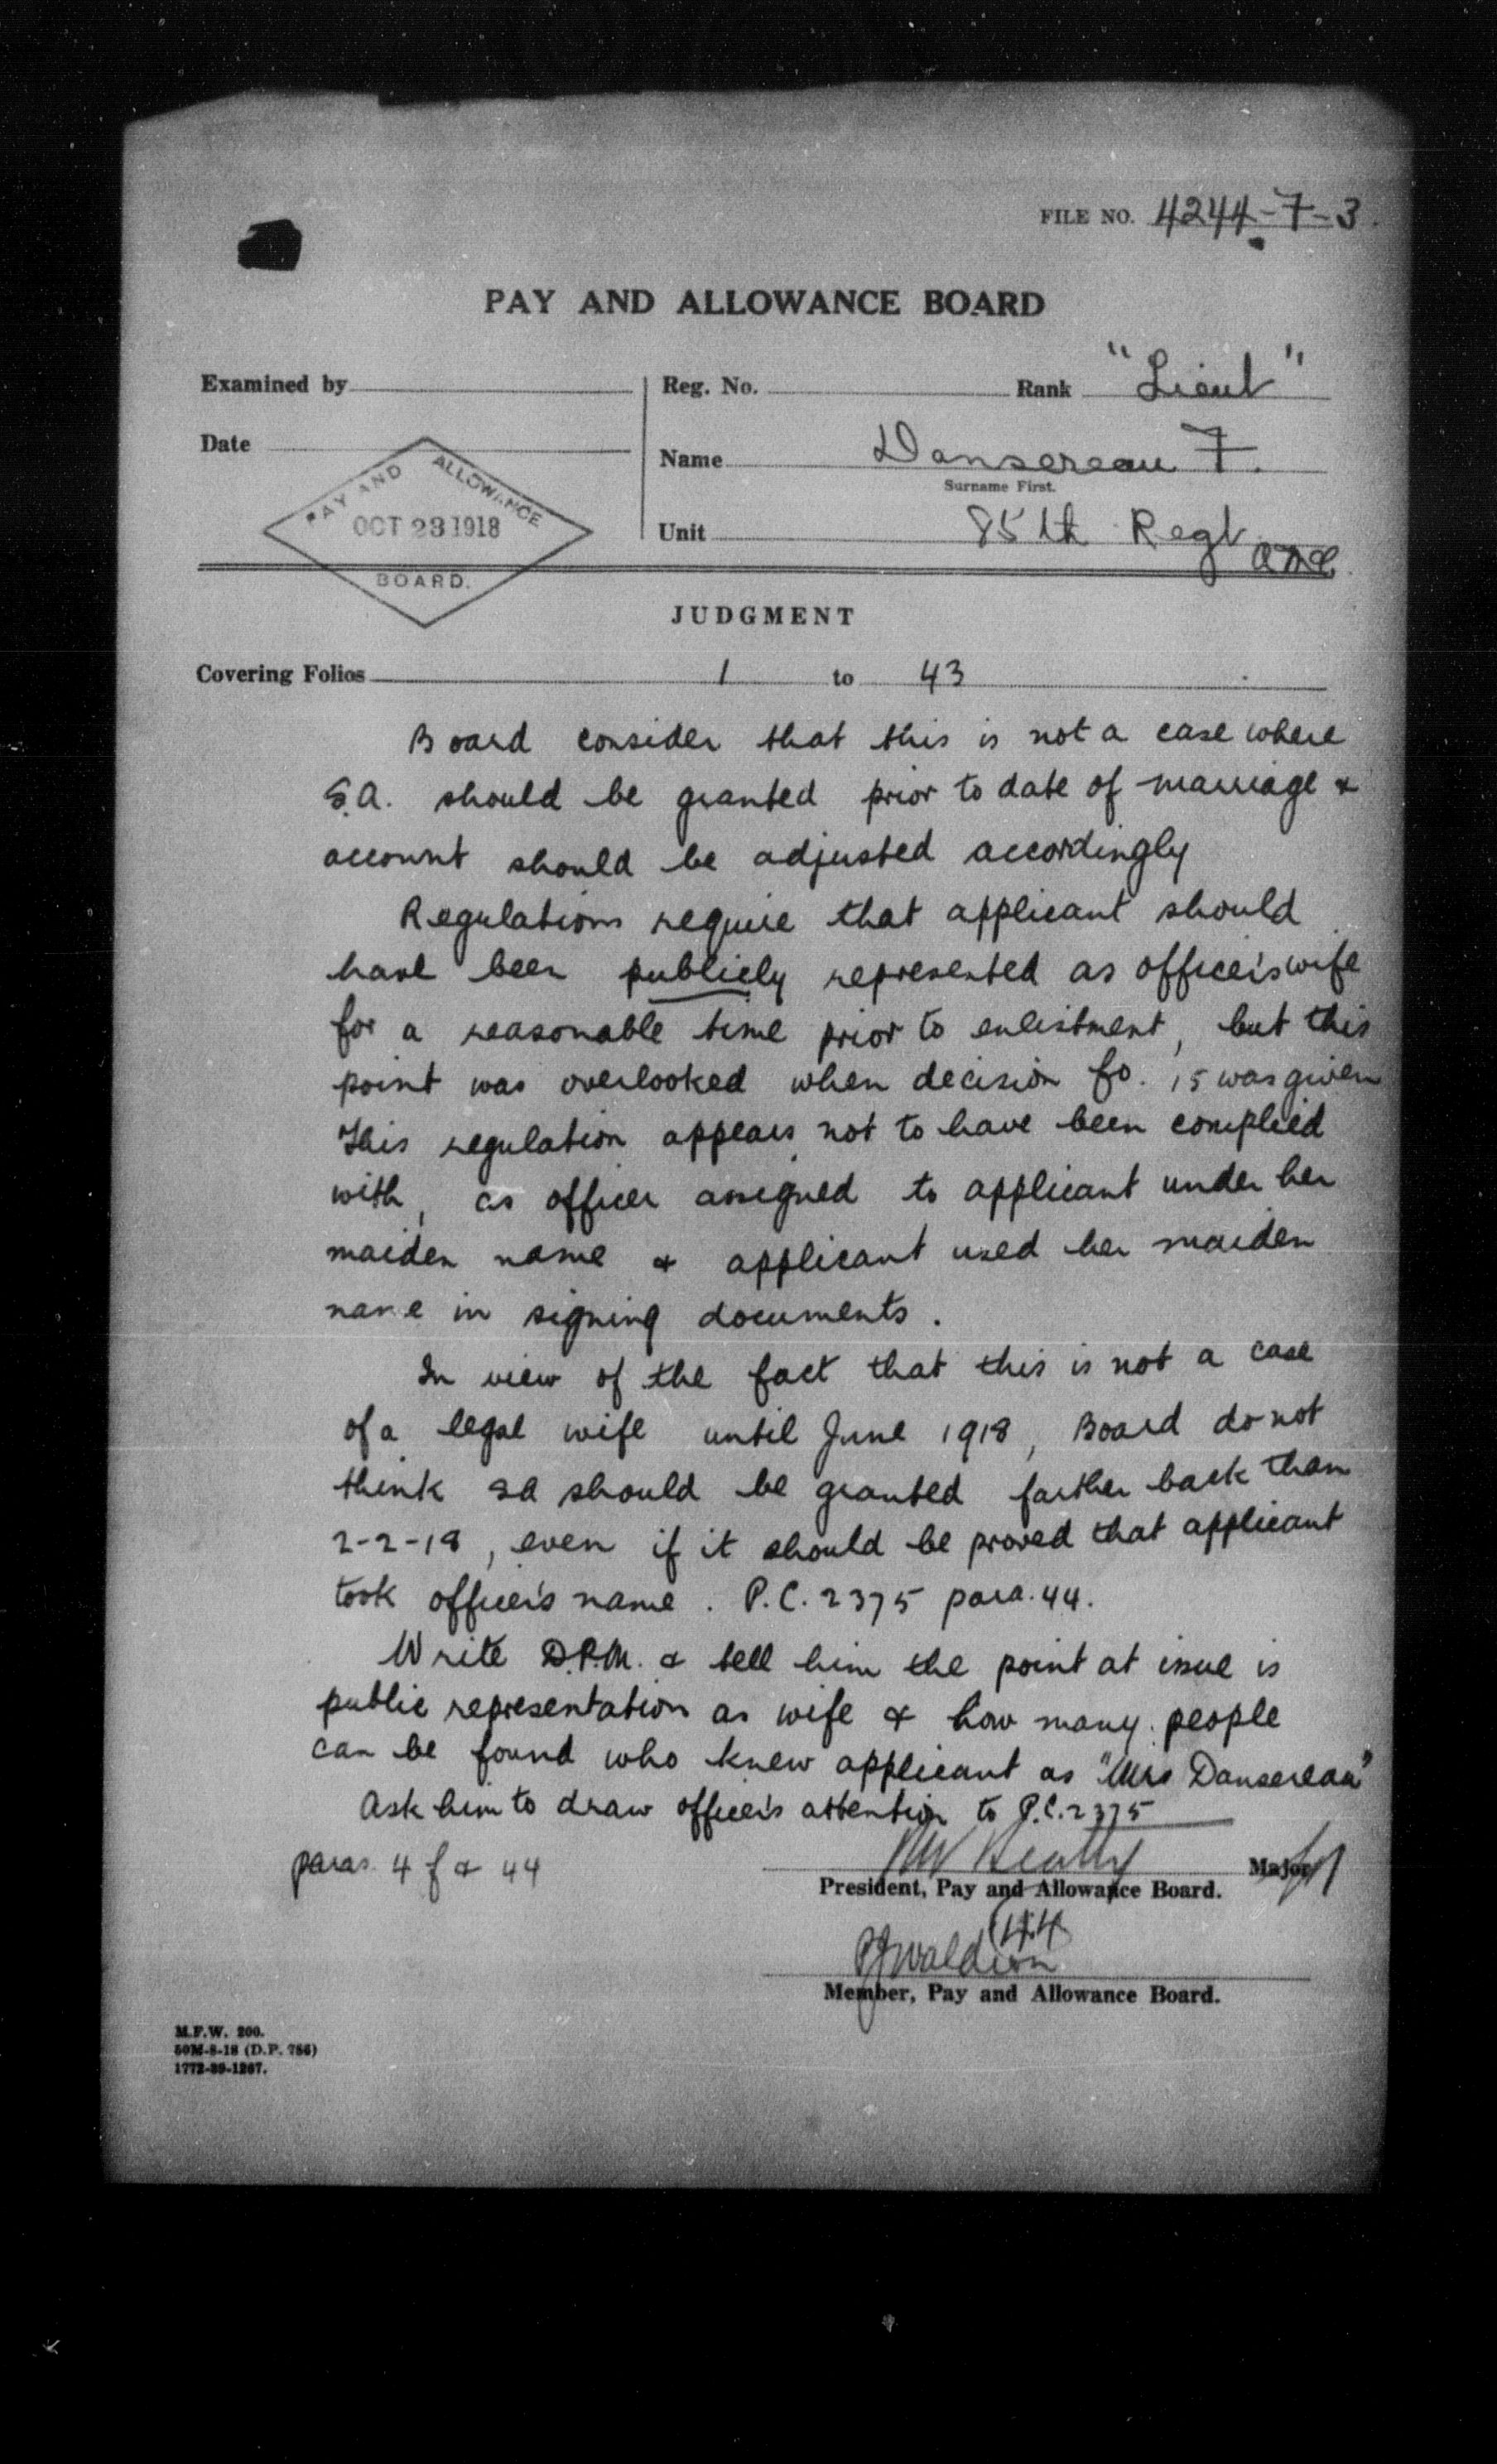 FILE NO. 4244-7-3.
PAY AND ALLOWANCE BOARD
Examined by
Reg. No. Rank "Lieut"
Date
Name Dansereau F.
Surname First.
PAY AND ALLOWANCE
OCT 23 1918
BOARD.
Unit 85th Regt
JUDGMENT
Covering Folios 1 to 43
Board consider that this is not a case where
S.A. should be granted prior to date of marriage &
account should be adjusted accordingly
Regulations require that applicant should
have been publicly represented as officer's wife
for a reasonable time prior to enlistment, but this
point was overlooked when decision fo. 15 was given
This regulation appears not to have been complied
with, as officer assigned to applicant under her
maiden name & applicant used her maiden
name in signing documents.
In view of the fact that this is not a case
of a legal wife until June 1918, Board do not
think SA should be granted farther back than
2-2-18, even if it should be proved that applicant
took officer's name. P.C. 2375 para. 44.
Write D.P.M. & tell him the point at issue is
public representation as wife & how many people
can be found who knew applicant as "Mrs Dansereau"
Ask him to draw officer's attention to P.C. 2375
paras. 4 f & 44
Major
President, Pay and Allowance Board.
Member, Pay and Allowance Board.
M.F.W. 200.
50M-8-18 (D.P. 786)
1772-39-1267.